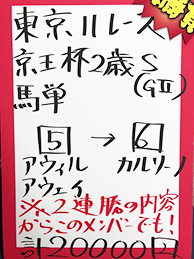 東京11レース
京王杯2歳S
(GⅡ)
馬単
5 → 6
アウィル カルリーノ
アウェイ
※2連勝の内容
からこのメンバーでも!
120000円